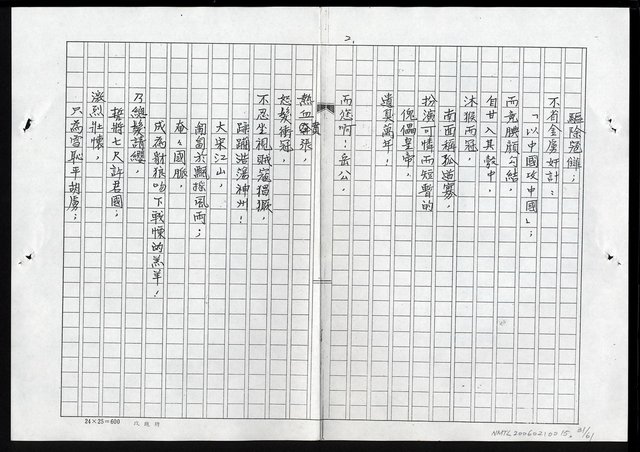 2.
驅除寇讎；
不宥金虜奸計：
「以中國攻中國」；
而竟腆顏勾結，
自甘入其彀中，
沐猴而冠，
南面稱孤道寡，
扮演可憐而短暫的
傀儡皇帝，
遺臭萬年！
而您啊！岳公，
熱血賁張，
怒髮衝冠，
不忍坐視賊寇猖獗，
蹂躪浩蕩神州！
大宋江山，
匍匐於飄搖風雨；
奄奄國脈，
成為豺狼吻下戰慄的羔羊！
乃總髮請纓，
誓將七尺許君國；
激烈壯懷，
只為雪恥平胡虜；
24×25=600
NMTL20060210015. 31/61